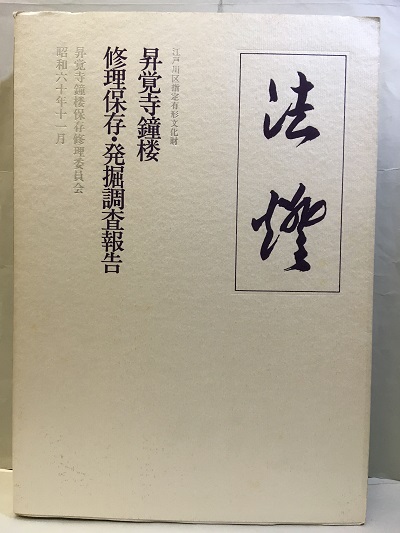 法燈
江戸川区指定有形文化財
昇覚寺鐘楼
修理保存・発掘調査報告
昇覚寺鐘楼保存修理委員会
昭和六十年十一月